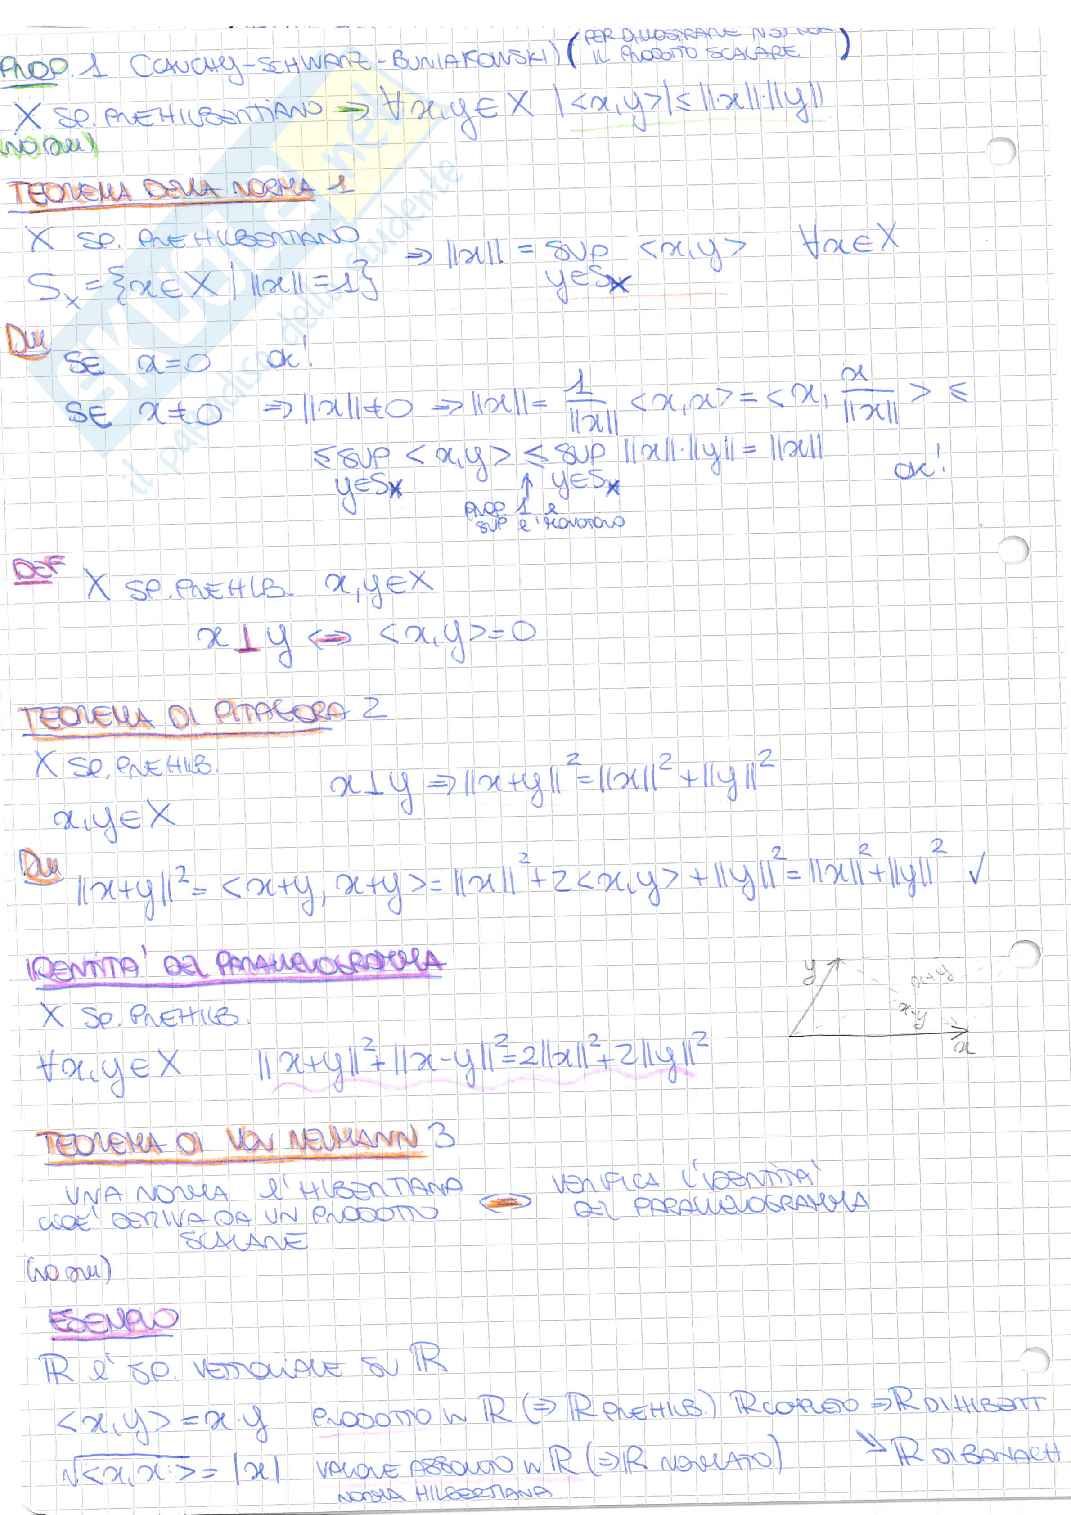 PROP. 1 (CAUCHY-SCHWARZ-BUNIAKOWSKI) (PER DIMOSTRARE NON USA
IL PRODOTTO SCALARE)
X SP. PREHILBERTIANO ⇒ ∀x,y∈X |<x,y>| ≤ ||x||·||y||
(NO DIM)
TEOREMA DELLA NORMA 1
X SP. PREHILBERTIANO
S_x = {x∈X | ||x|| = 1} ⇒ ||x|| = SUP_{y∈S_x} <x,y> ∀x∈X
DIM
SE x=0 OK!
SE x≠0 ⇒ ||x||≠0 ⇒ ||x|| = 1/||x|| <x,x> = <x, x/||x||> ≤
≤ SUP_{y∈S_x} <x,y> ≤ SUP_{y∈S_x} ||x||·||y|| = ||x|| OK!
↑
PROP. 1 e
SUP E' MONOTONO
DEF X SP. PREHILB. x,y∈X
x⊥y ⇔ <x,y>=0
TEOREMA DI PITAGORA 2
X SP. PREHILB.
x,y∈X
x⊥y ⇒ ||x+y||² = ||x||² + ||y||²
DIM ||x+y||² = <x+y, x+y> = ||x||² + 2<x,y> + ||y||² = ||x||² + ||y||² ✓
IDENTITA' DEL PARALLELOGRAMMA
X SP. PREHILB.
∀x,y∈X ||x+y||² + ||x-y||² = 2||x||² + 2||y||²
y
x+y
x-y
x
TEOREMA DI VON NEUMANN 3
UNA NORMA E' HILBERTIANA
CIOE' DERIVA DA UN PRODOTTO
SCALARE
⇔
VERIFICA L'IDENTITA'
DEL PARALLELOGRAMMA
(NO DIM)
ESEMPIO
ℝ E' SP. VETTORIALE SU ℝ
<x,y> = x·y PRODOTTO IN ℝ (⇒ ℝ PREHILB.) ℝ COMPLETO ⇒ ℝ DI HILBERT
√<x,x> = |x| VALORE ASSOLUTO IN ℝ (⇒ ℝ NORMATO) ⇘ ℝ DI BANACH
NORMA HILBERTIANA
SKUOLA.net
il paradiso dello studente